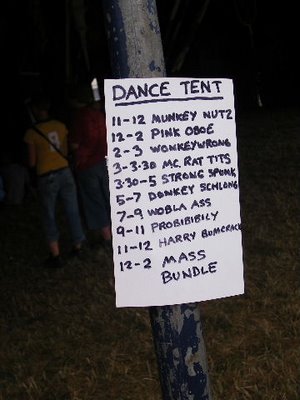 DANCE TENT
11-12 MUNKEY NUTZ
12-2 PINK OBOE
2-3 WONKEYWRONG
3-3.30 MC. RAT TITS
3.30-5 STRONG SPUNK
5-7 DONKEY SCHLONG
7-9 WOBLA ASS
9-11 PROBIBIBILY
11-12 HARRY BUMCRACK
12-2 MASS
BUNDLE